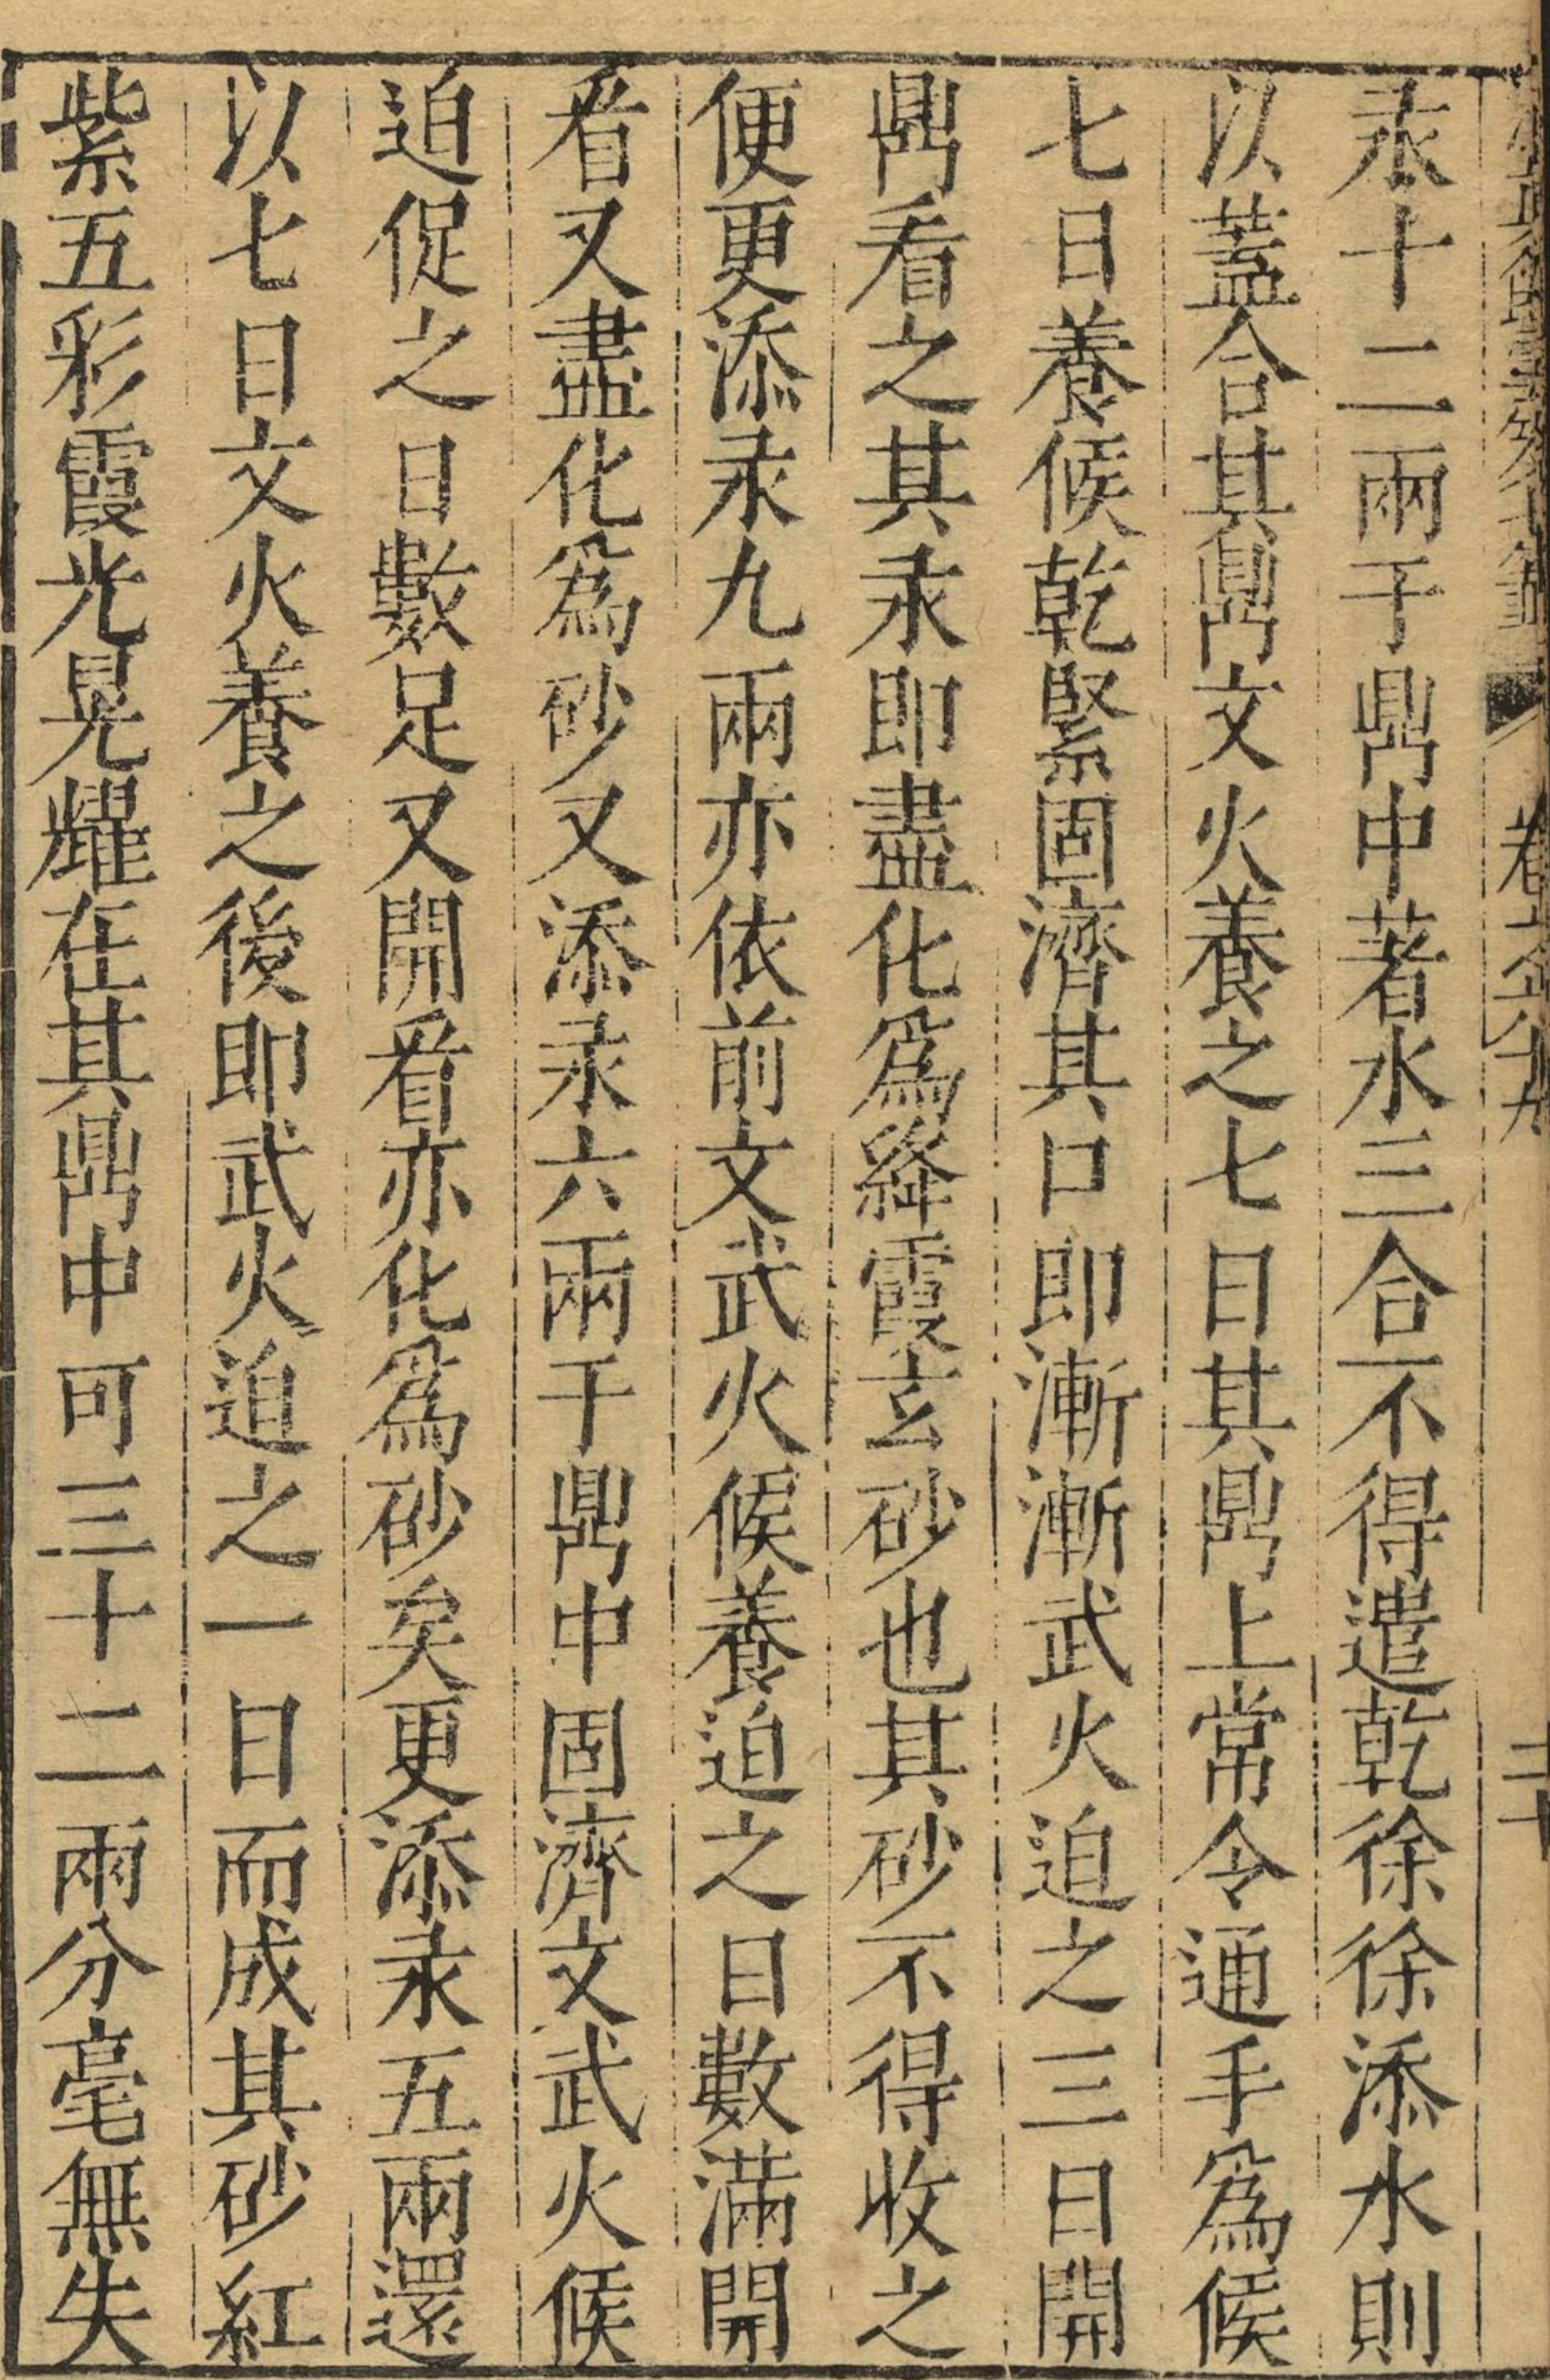 汞十二兩于鼎中著水三合不得遣乾徐徐添水則
以蓋合其鼎文火養之七日其鼎上常令通手爲候
七日養候乾緊固濟其口即漸漸武火迫之三日開
鼎看之其汞即盡化爲絳霞玄砂也其砂不得收之
便更添汞九兩亦依前文武火候養迫之日數滿開
看又盡化爲砂又添汞六兩于鼎中固濟文武火候
迫促之日數足又開看亦化爲砂矣更添汞五兩還
以七日文火養之後即武火迫之一日而成其砂紅
紫五彩霞光晃耀在其鼎中可三十二兩分毫無失